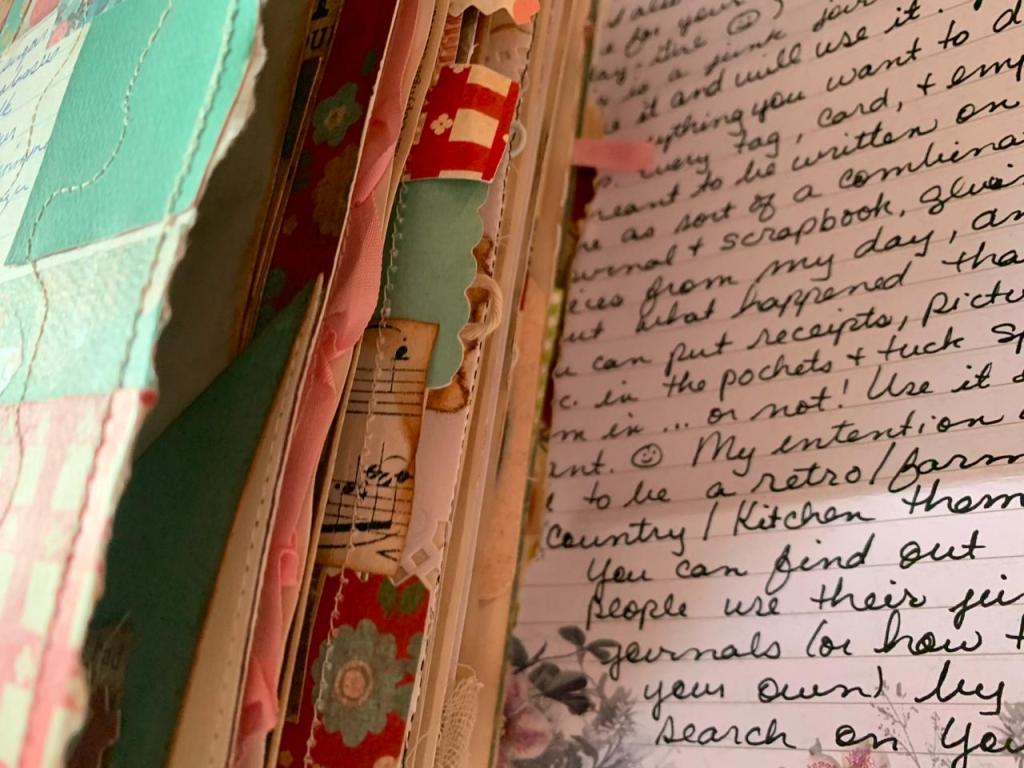 e for your
is a junk jour
it and will use it.
ything you want to d
every tag, card, + emp
meant to be written on
as sort of a combina
urnal + scrapbook, gluin
from my day, an
ut what happened tha
u can put receipts, pictu
c. in the pockets + tuck sp
m in ... or not! Use it
ant. ☺ My intention
to be a retro/farm
country / Kitchen them
You can find out
people use their ju
journals (or how t
your own) by
search on You